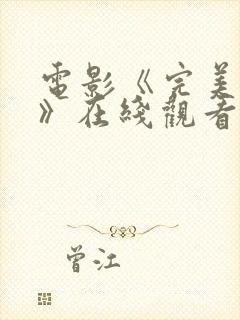 電影《完美
》在綫觀看
曾江